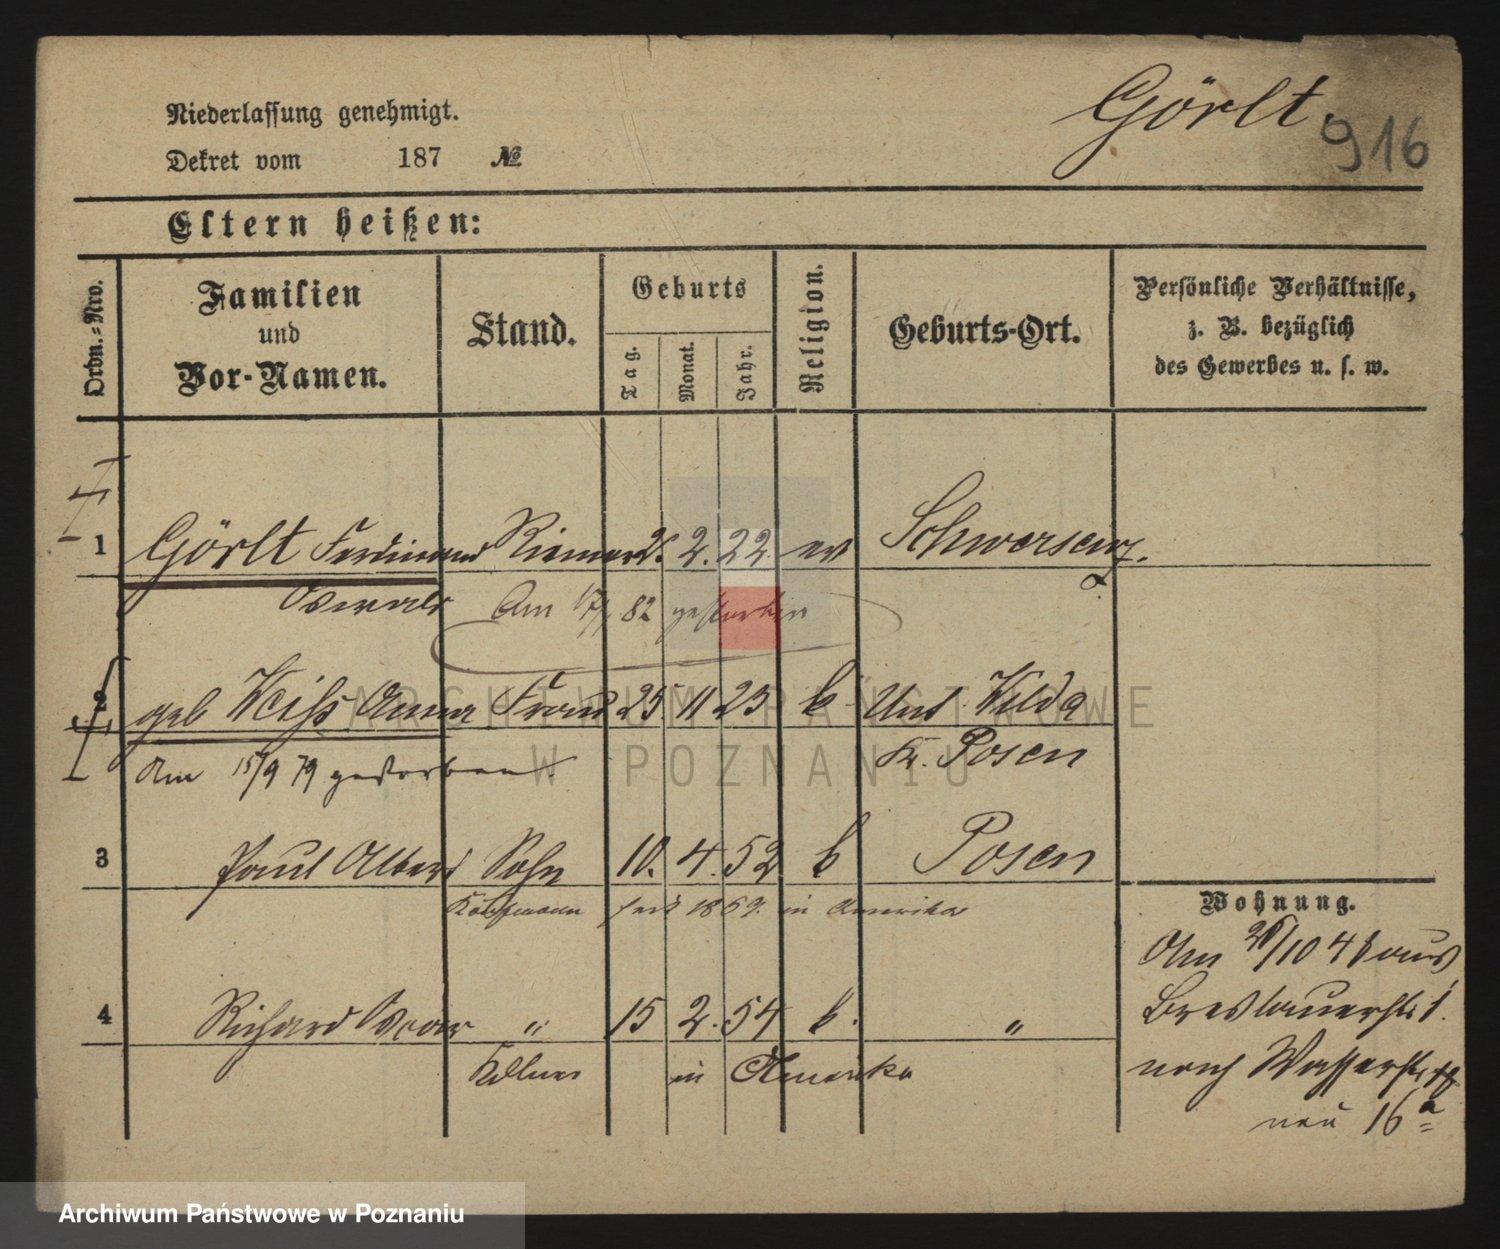 Görlt.
916
Niederlassung genehmigt.
Dekret vom 187 №
Eltern heißen:
Ordn.-Nro.
Familien und Vor-Namen.
Stand.
Geburts
Tag. Monat. Jahr.
Religion.
Geburts-Ort.
Persönliche Verhältnisse, z. B. bezüglich des Gewerbes u. s. w.
1 Görlt Ferdinand Riemer 2. 22. ev Schwersenz.
Oswald Am 82 gestorben
2 geb Weiss Anna Frau 25. 11 23 k Unt. Wilda
Am 15/9 79 gestorben Kr. Posen
3 Paul Albert Sohn 10. 4. 52 k Posen
Kaufmann seit 1869. in Amerika
4 Richard Oscar " 15 2. 54 k. "
Kellner in Amerika
Wohnung.
Am /10 aus
Breslauerstr.
nach Wasserstr.
neu 16a
ARCHIWUM PAŃSTWOWE
W POZNANIU
Archiwum Państwowe w Poznaniu